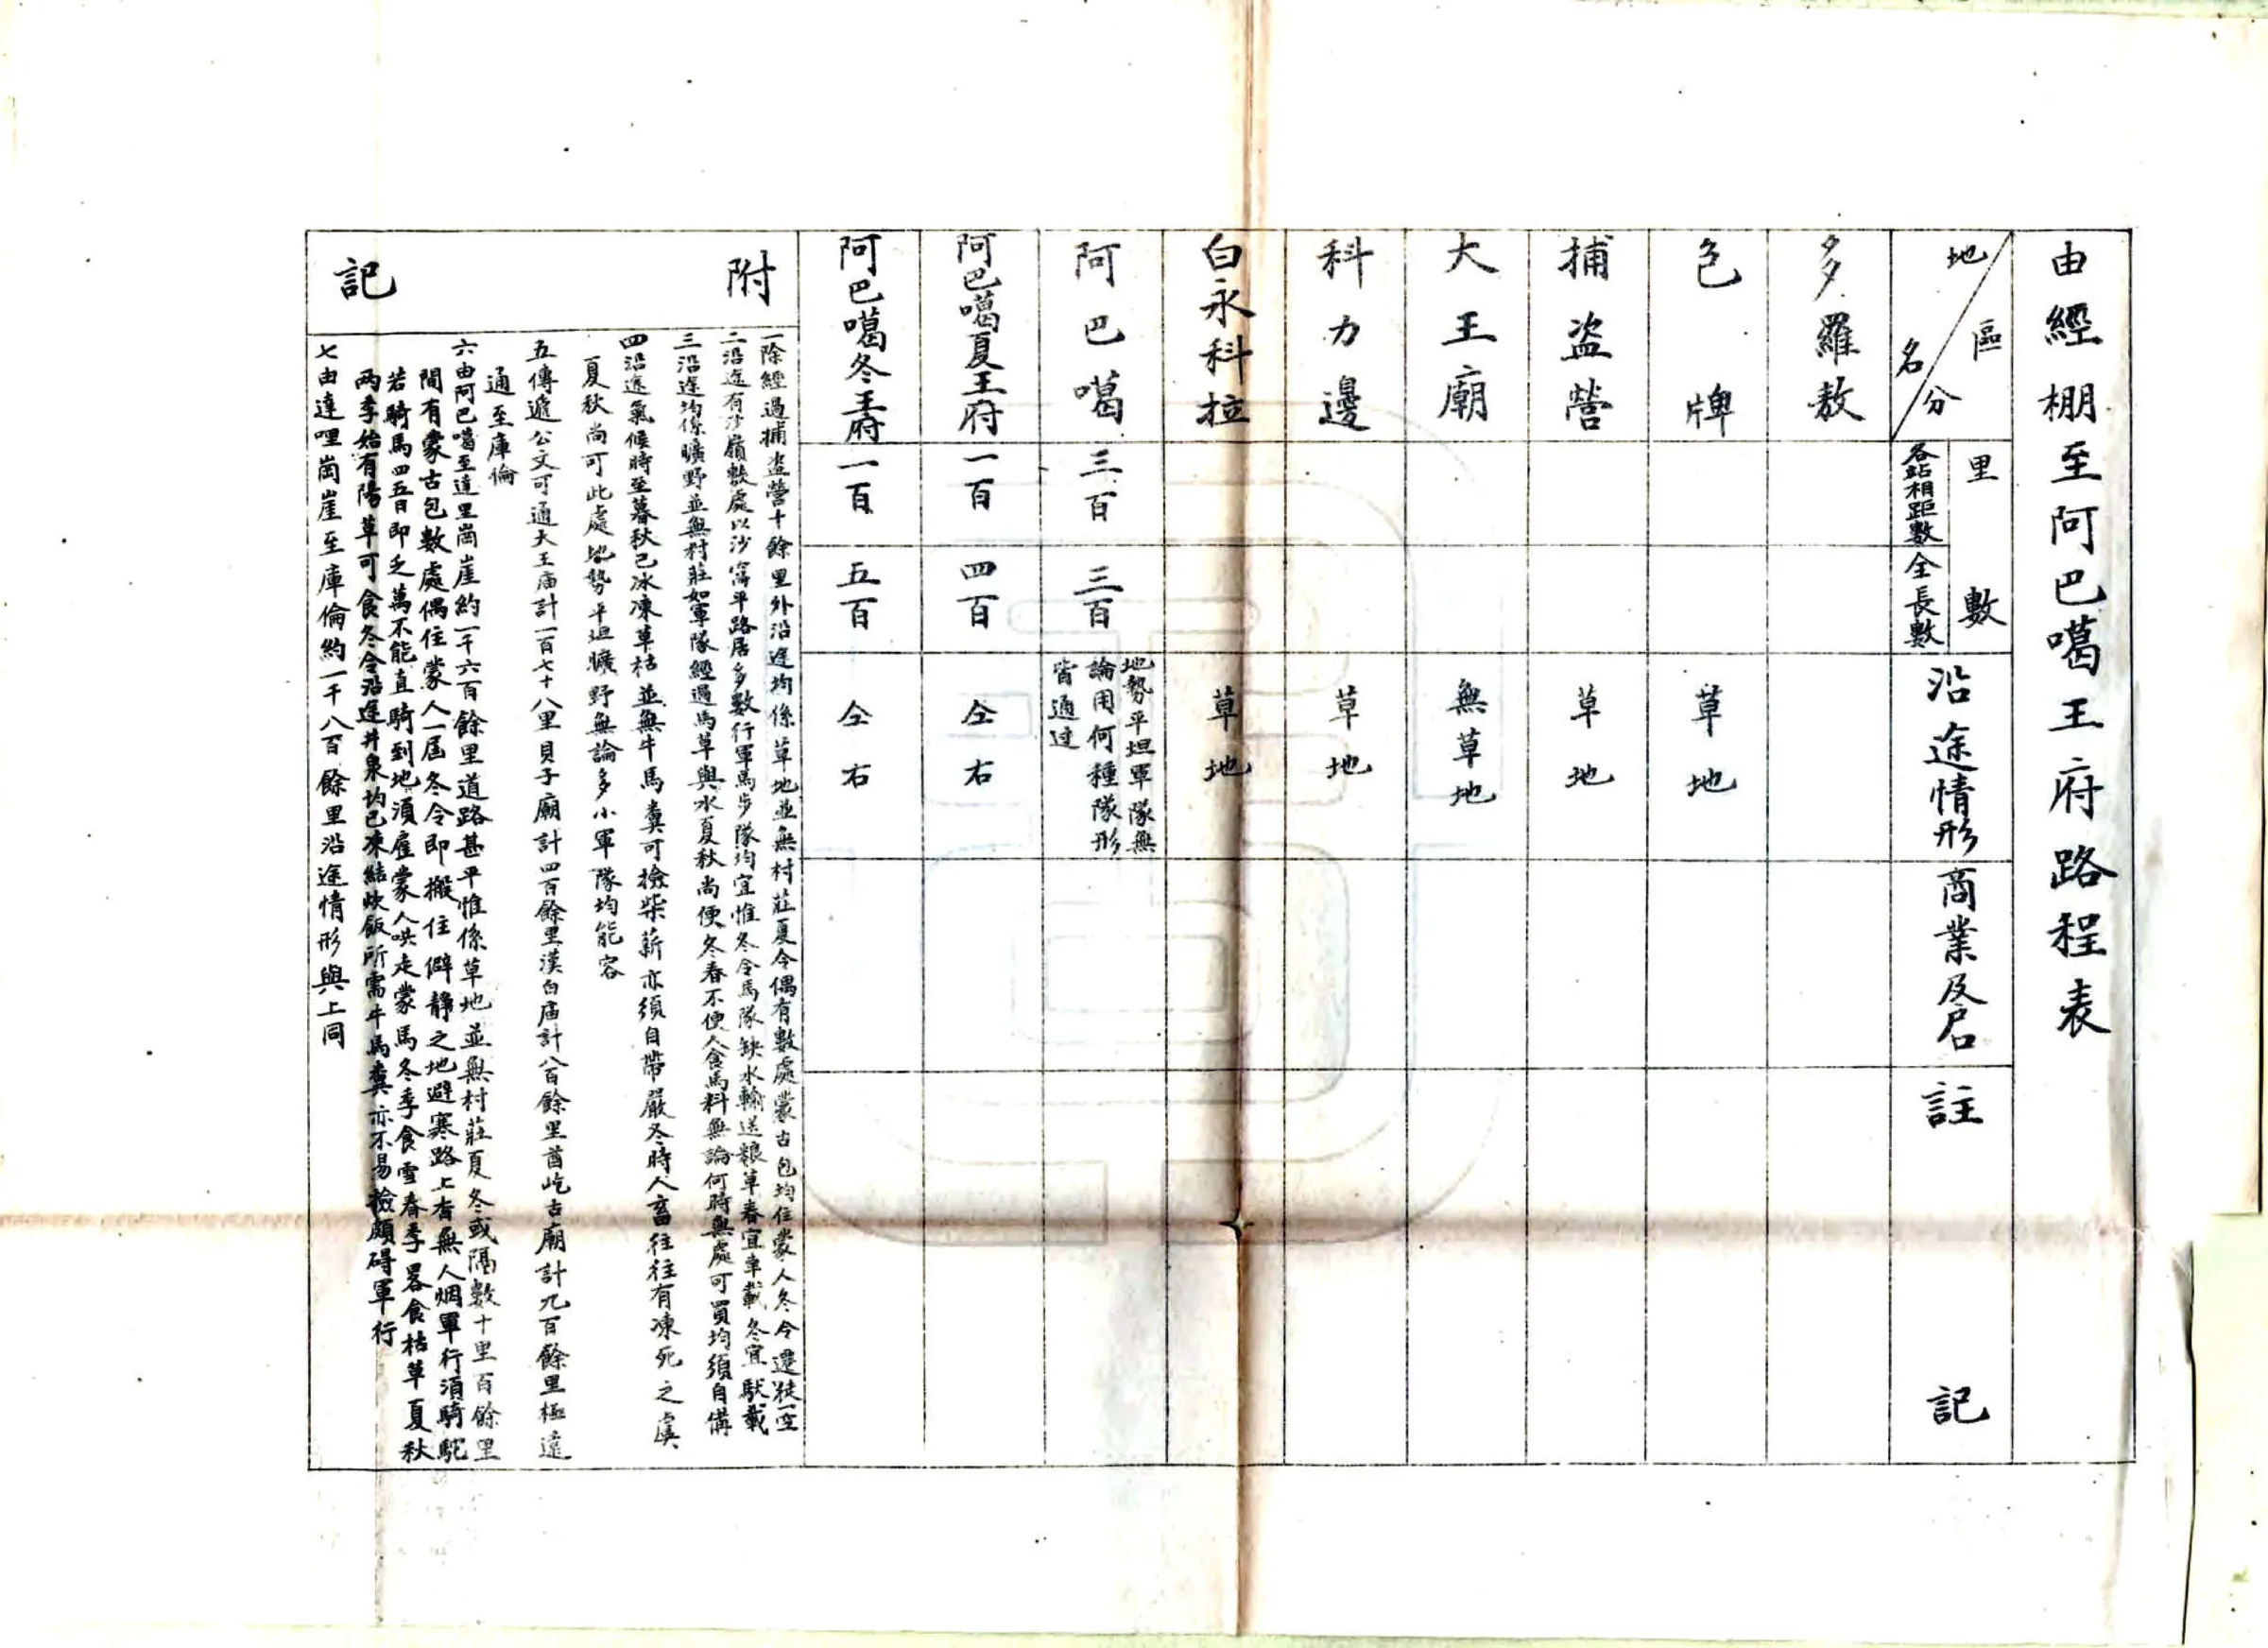 由經棚至阿巴噶王府路程表
地名 區分
里數
各站相距數
全長數
沿途情形
商業及戶口
註記
多羅敖
色牌
草地
捕盜營
草地
大王廟
無草地
科力邊
草地
白永科拉
草地
阿巴噶
三百
三百
地勢平坦軍隊無
論用何種隊形
皆通過
阿巴噶夏王府
一百
四百
仝右
阿巴噶冬王府
一百
五百
仝右
附記
一除經過捕盜營十餘里外沿途均係草地並無村莊夏令偶有數處蒙古包均住蒙人冬令遷徙一空
二沿途有沙嶺數處以沙窩平路居多數行軍馬步隊均宜惟冬令馬隊缺水輸送糧草春宜車載冬宜馱載
三沿途均係曠野並無村莊如軍隊經過馬草與水夏秋尚便冬春不便人食馬料無論何時無處可買均須自備
四沿途氣候時至暮秋已冰凍草枯並無牛馬糞可撿柴薪亦須自帶嚴冬時人畜往往有凍死之虞
夏秋尚可此處地勢平坦曠野無論多小軍隊均能容
五傳遞公文可通大王庙計一百七十八里貝子廟計四百餘里漢白庙計八百餘里酋屹古廟計九百餘里極遠
通至庫倫
六由阿巴噶至達里崗崖約一千六百餘里道路甚平惟係草地並無村莊夏冬或隔數十里百餘里
間有蒙古包數處偶住蒙人一屆冬令即搬住僻靜之地避寒路上杳無人烟軍行須騎駝
若騎馬四五日即乏萬不能直騎到地須雇蒙人哄走蒙馬冬季食雪春季畧食枯草夏秋
两季始有陽草可食冬令沿途井泉均已凍結炊飯所需牛馬糞亦不易撿頗碍軍行
七由達哩崗崖至庫倫約一千八百餘里沿途情形與上同